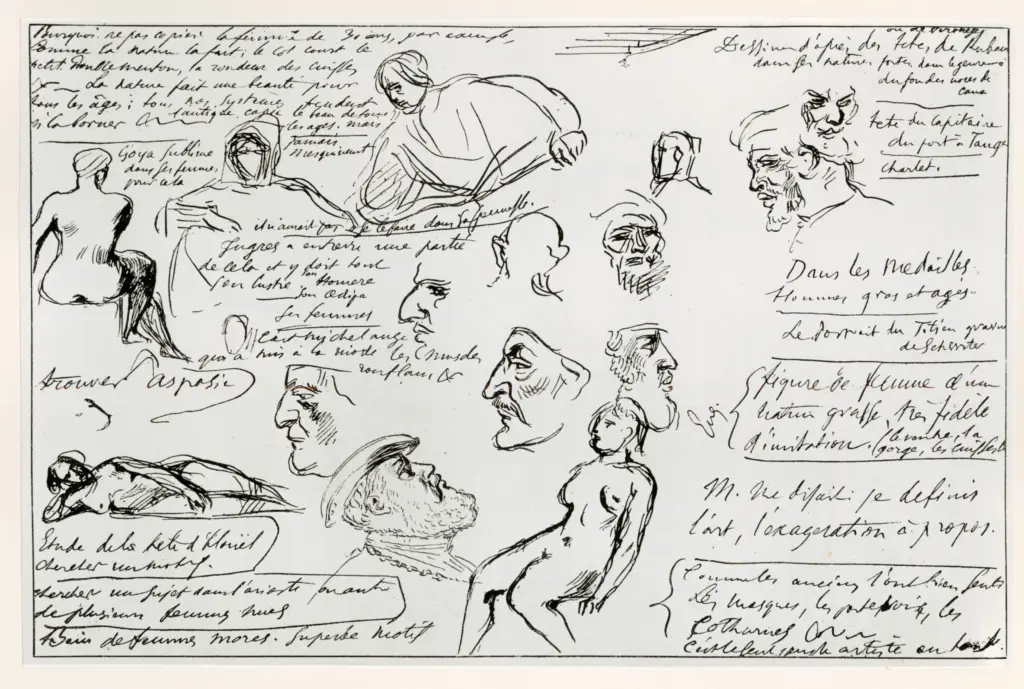 Pourquoi ne pas copier la femme de 30 ans, par exemple,
comme la nature la fait; le col court le
petit menton, la rondeur des cuisses
&c — La nature fait une beauté pour
tous les âges: tous nos systèmes tendent
à la borner l'antique copie le beau de tous
les ages. mais
jamais
mesquinement
Goya sublime
dans ses femmes
pour cela
Ingres a entrevu une partie
de cela et y doit tout
son lustre son Homere
son Œdipe
ses femmes
C'est Michel ange
qui a mis à la mode les muscles
ronflans &c
trouver Aspasie
Etude de la tête d'
chercher un motif.
chercher un sujet dans l'arioste
de plusieurs femmes nues
Bain de femmes mores. Superbe motif
ou de Veronese
Dessiner d'après des têtes de Rubens
dans ses natures fortes, dans le genre
du fond des noces de
Cana
tete du Capitaine
du port à Tanger
Charlet.
Dans les Medailles
Hommes gros et agés.
Le Portrait du Titien gravure
de Schwiter
figure de femme d'une
nature grasse, très fidèle
d'imitation. (le ventre, la
gorge, les cuisses &
M. me disait: je definis
l'art, l'exageration à propos.
Comme les anciens l'ont bien senti
Les masques, les les
Cothurnes
C'est le seul artiste au